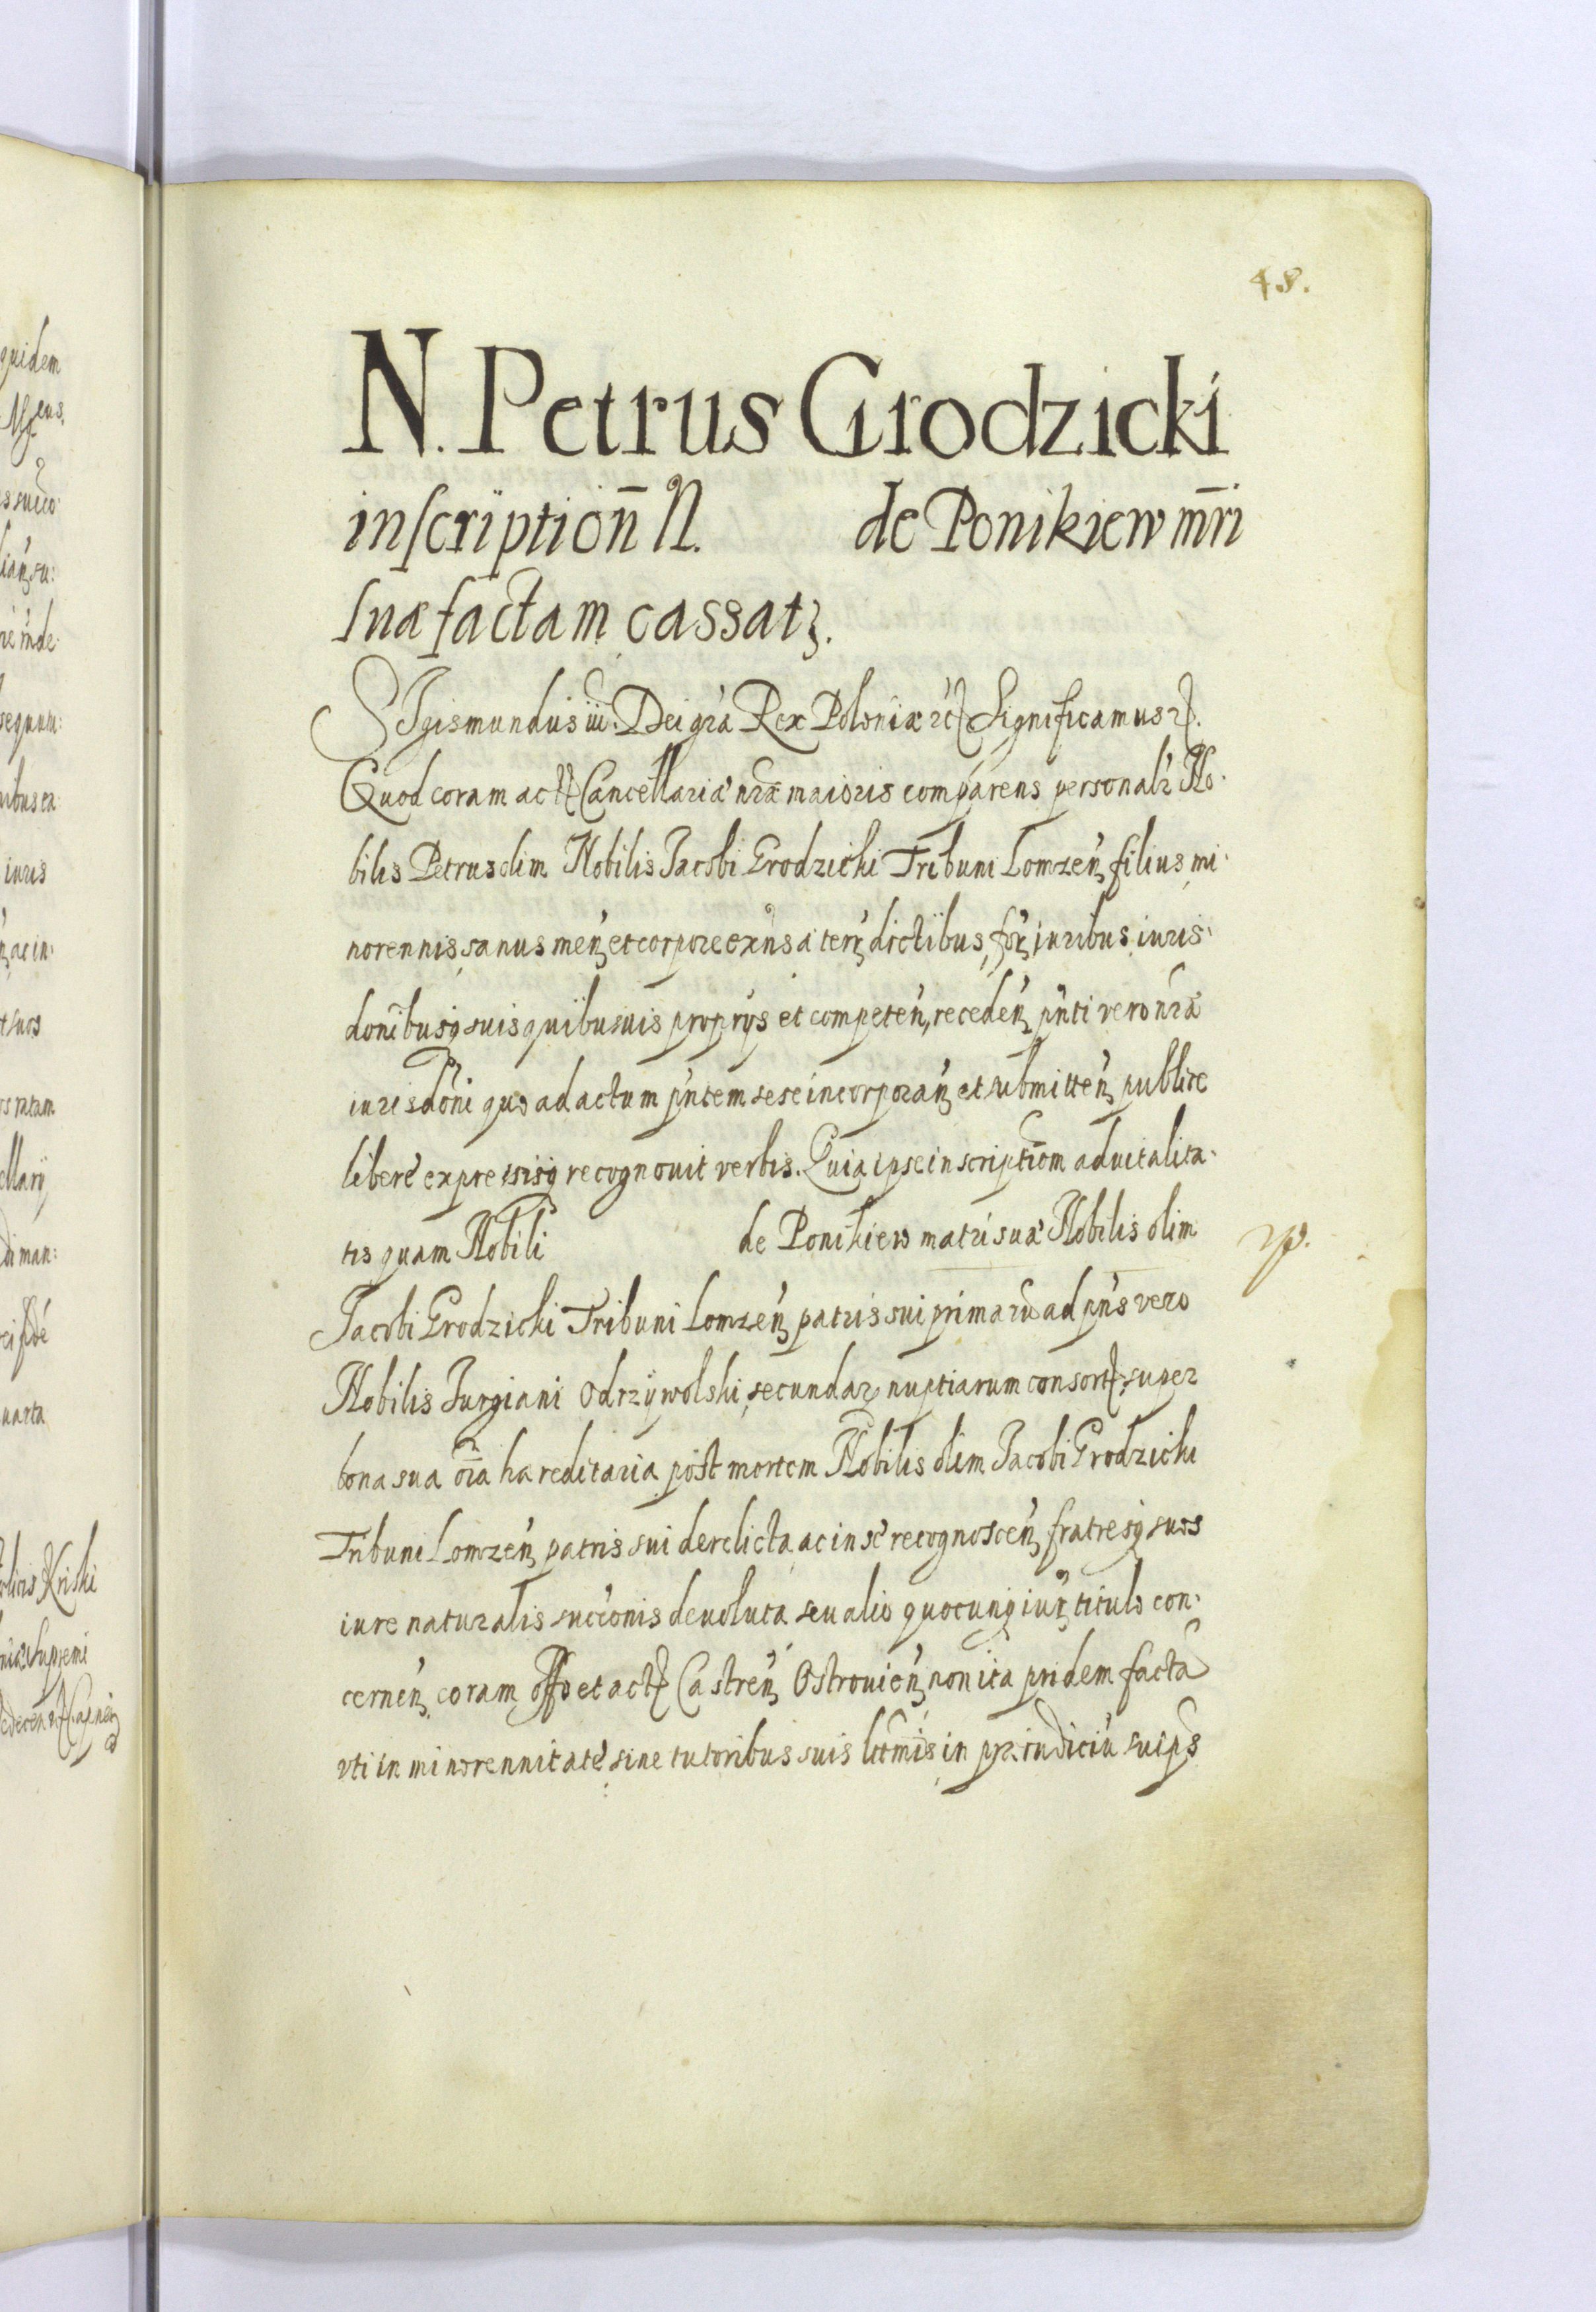 48.
N. Petrus Grodzicki
inscription̄ N. de Ponikiew mr̄i
suæ factam cassatꝫ.
SIgismundus iii. Dei gr̃a Rex Poloniæ ꝛc̃ Significamus ꝛ.
Quod coram act Cancellariæ nr̃æ maioris comparens personalr̃ No-
bilis Petrus olim Nobilis Jacobi Grodzicki Tribuni Lomzen̄ filius mi-
norennis, sanus men̄ et corpore exn̄s à terr̄ dictibus, for̄ iuribus iuris-
donibusq̃ suis quibusuis proprijs et competen̄, receden̄ pn̄ti vero nr̃æ
iurisdoni quo ad actum pn̄tem sese incorporan̄ et submitten̄ publice
liberè expressisq̃ recognouit verbis. Quia ipse inscriptiom aduitalita-
tis quam Nobili de Ponikiew matri suæ Nobilis olim
Jacobi Grodzicki Tribuni Lomzen̄ patris sui primarū ad pn̄s vero
Nobilis Jurgiani Odrzywolski, secundarꝫ nuptiarum consort, super
bona sua oīa hæreditaria post mortem Nobilis olim Jacobi Grodzicki
Tribuni Lomzen̄ patris sui derelicta ac in sè recognoscen̄ fratresq̃ suos
iure naturalis succonis deuoluta seu alio quocunq̃ iur̄ titulo con-
cernen̄ coram offo et act Castren̄ Ostrouien̄ non ita pridem factã
vti in minorennitatē sine tutoribus suis lt̃mis in præiudiciū sui ip̃s
quidem
iuris
quarta